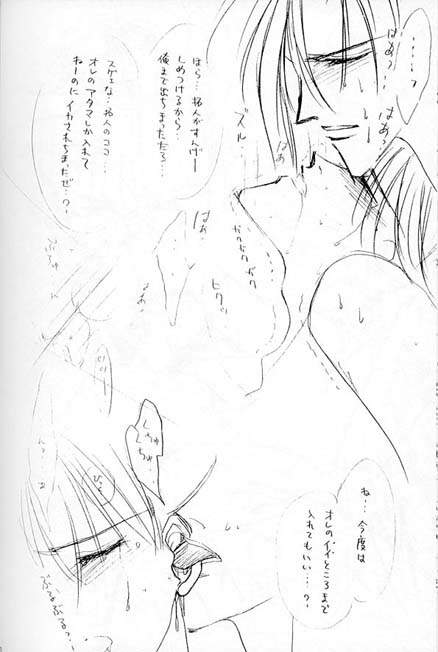 ……?
はぁ?
はぁ?
はぁ
ほら…拓人がすんげー
しめつけるから…
俺まで出ちまっただろ…
ズル…
スゲェな…拓人のココ…
オレのアタマしか入れて
ねーのにイカされちまったぜ…?
はぁ
ガクガクガク
ヒクッ
ね…今度は
オレのイイところまで
入れてもいい…?
くちゅ
くちゅ…
ぶるぶる?